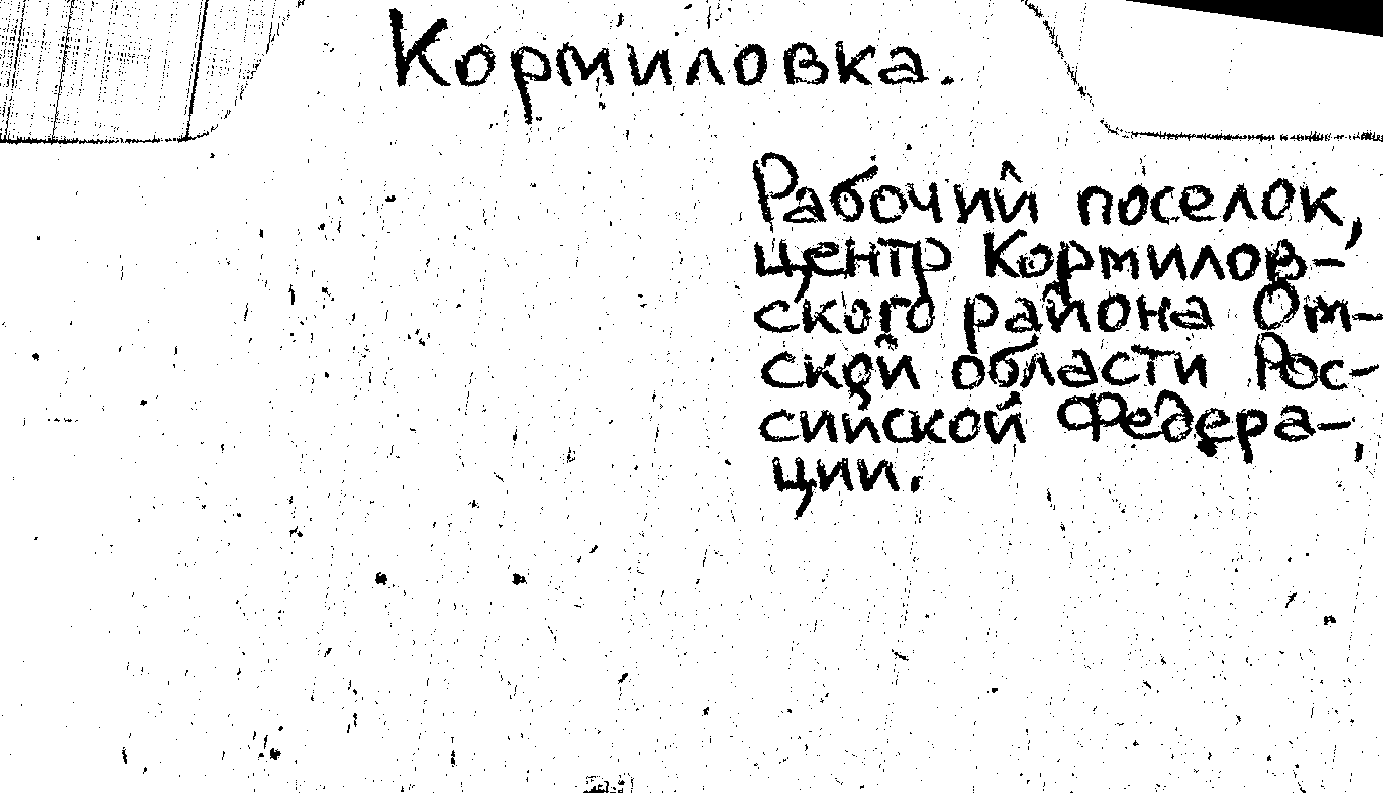 Кормиловка.
Рабочий поселок,
центр Кормилов-
ского района Ом-
ской области Рос-
сийской Федера-
ции.